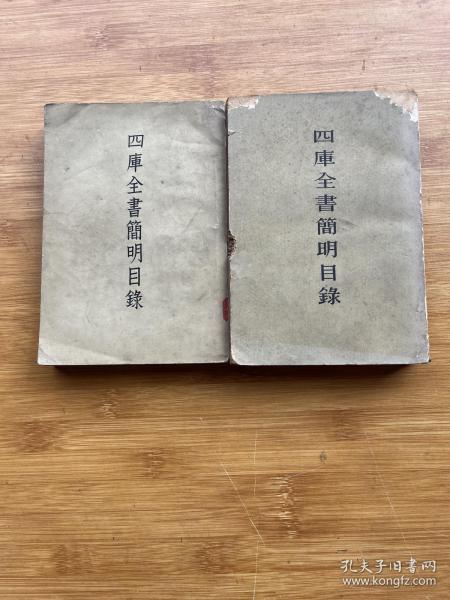 四庫全書簡明目錄
四庫全書簡明目錄
孔夫子旧书网
www.kongfz.com